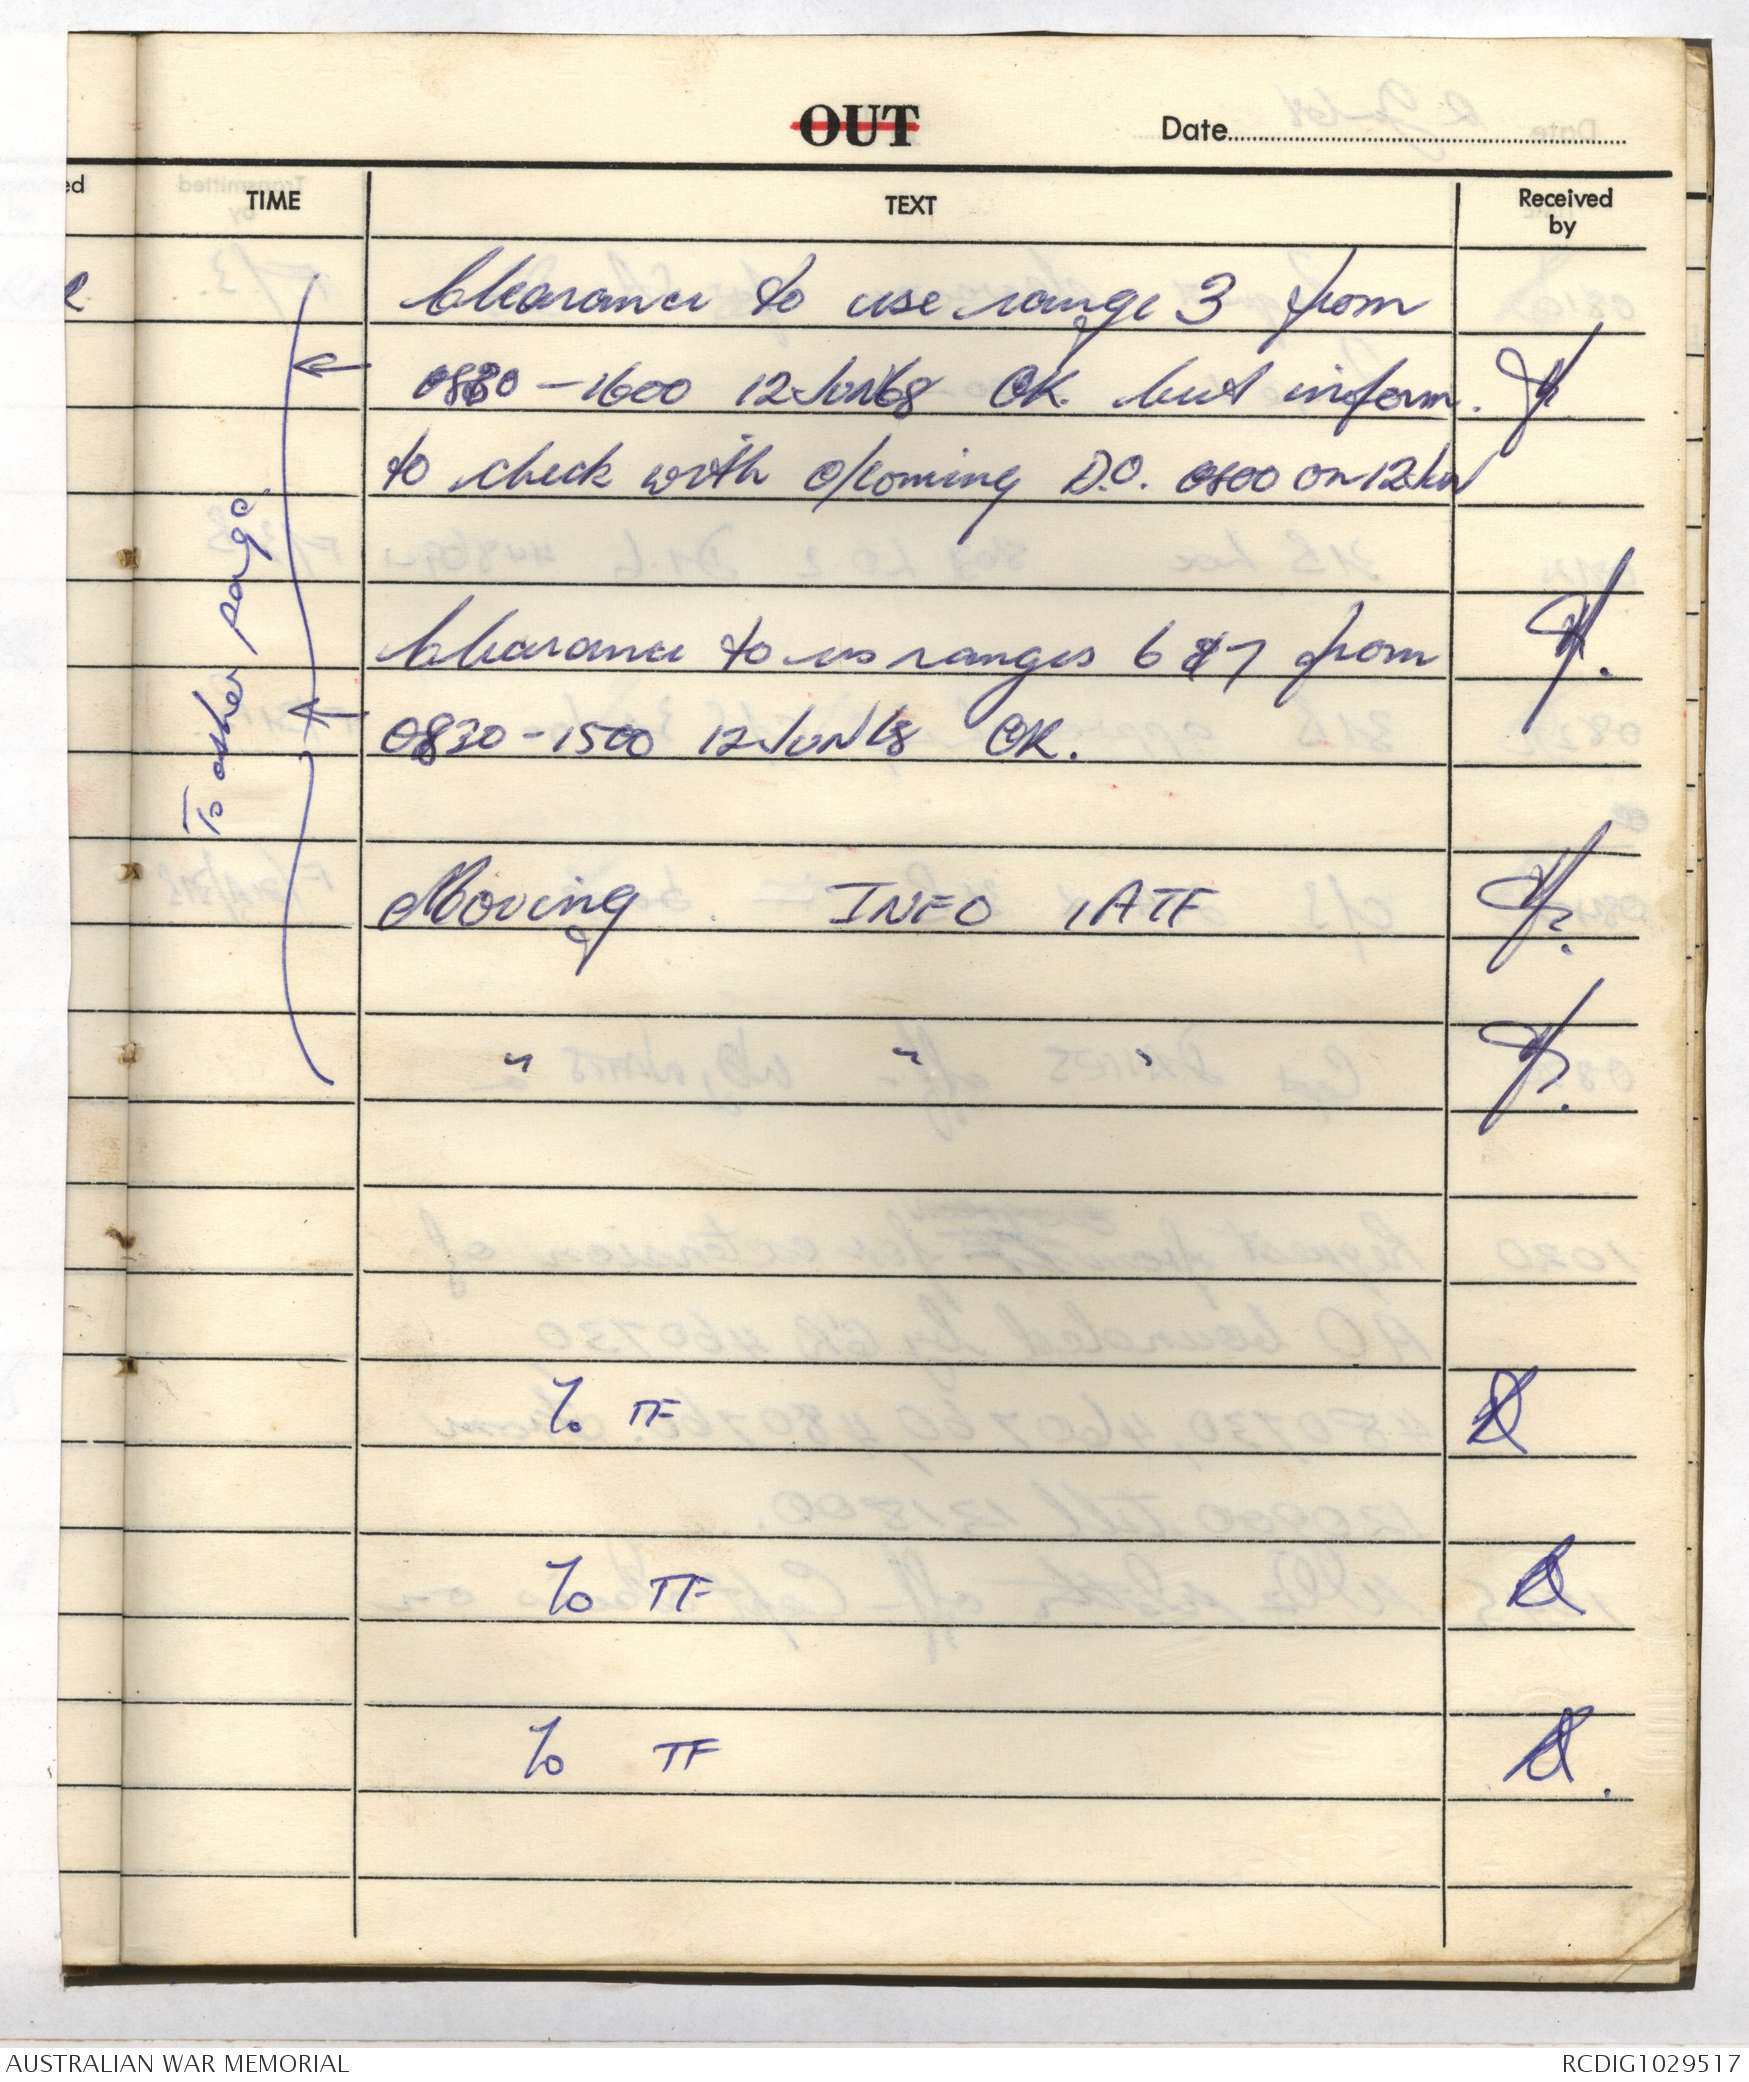 OUT
Date
TIME
TEXT
Received
by
Clearance to use range 3 from
0830 - 1600 12 Jun 68 OK but inform.
to check with o/coming D.O. 0800 on 12 Jun
Clearance to us ranges 6 & 7 from
0830 - 1500 12 Jun 68 OK.
To other page.
Moving. INFO 1ATF
" " "
To TF
To TF
To TF
AUSTRALIAN WAR MEMORIAL
RCDIG1029517